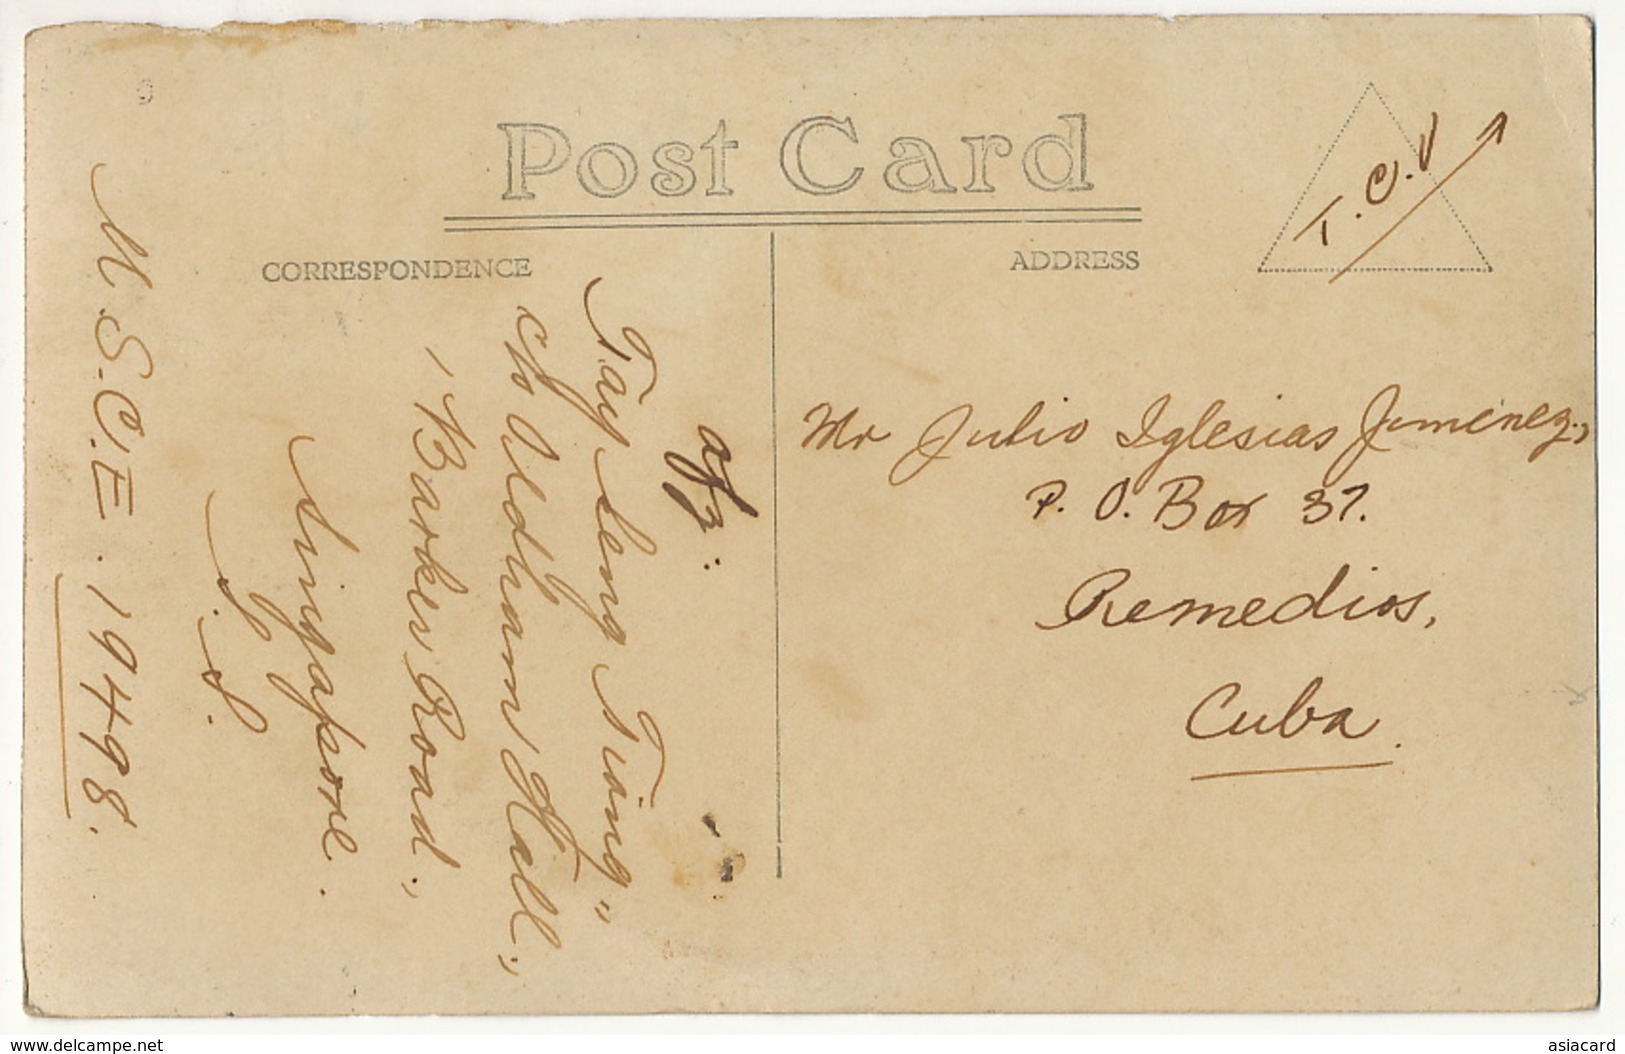 Post Card
CORRESPONDENCE
ADDRESS
T.C.V
Mr Julio Iglesias Jimenez,
P. O. Box 37.
Remedios,
Cuba.
Tay Seng Tiong,,
c/o Oldham Hall,,
1 Barker Road,,
Singapore.
S. S.
M.S.C.E. 19498.
www.delcampe.net
asiacard